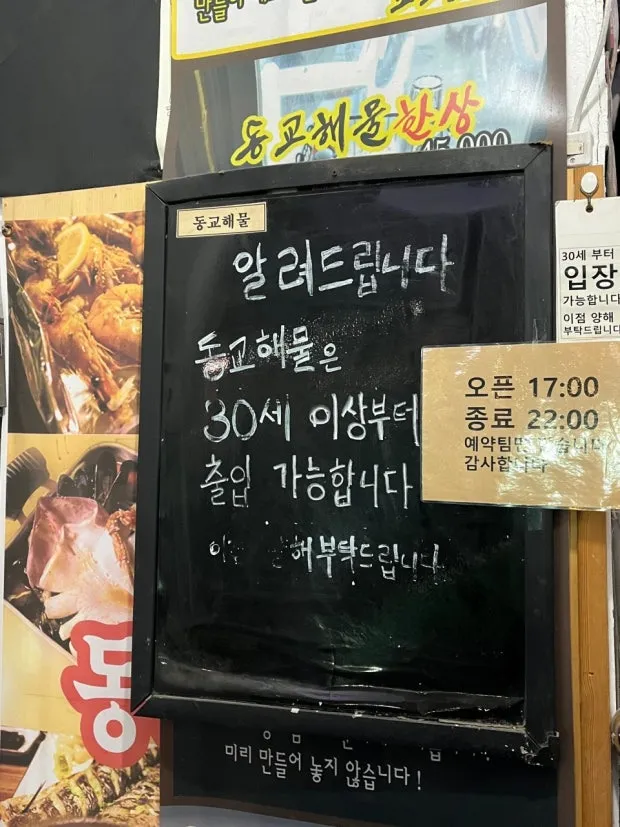 만들어
동교해물한상
45,000
동교해물
알려드립니다
동교해물은
30세 이상부터
출입 가능합니다
해부탁드립니다
30세 부터
입장
가능합니다
이점 양해
부탁드립니다
오픈 17:00
종료 22:00
예약팀만
감사합니다
동
미리 만들어 놓지 않습니다!